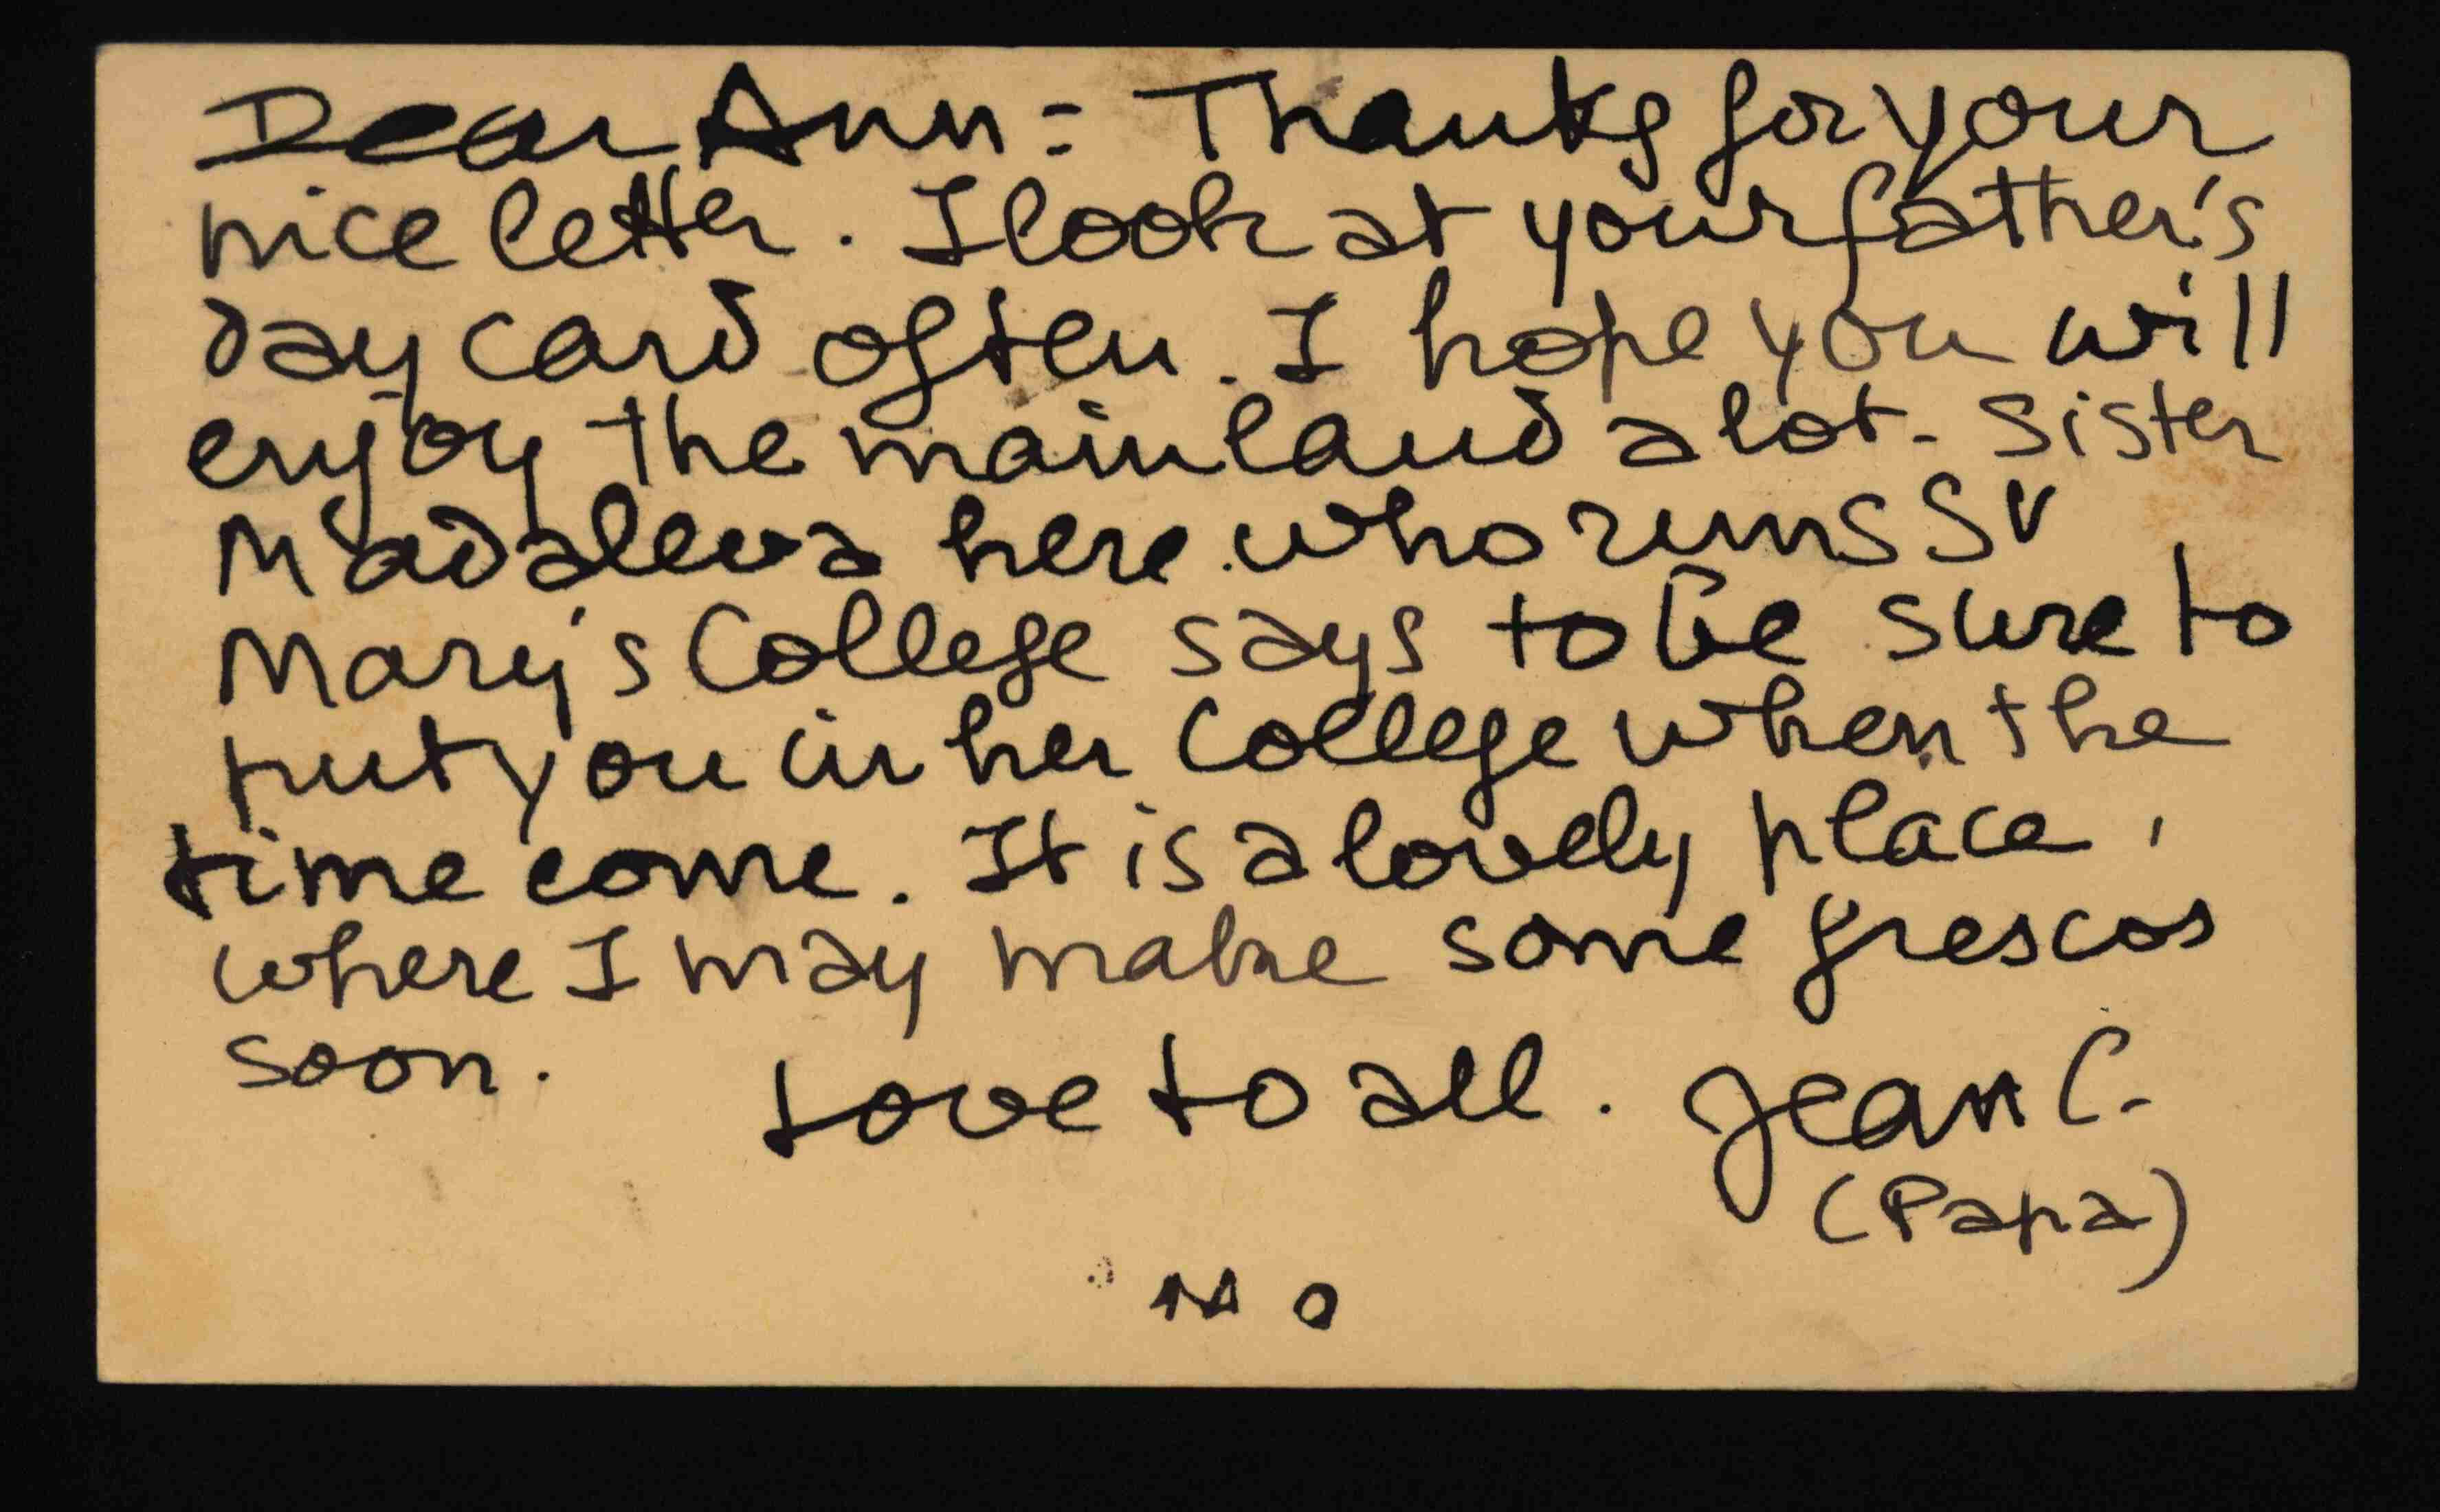 Dear Ann = Thanks for your
nice letter. I look at your father's
day card often. I hope you will
enjoy the mainland a lot - Sister
Madaleva here who runs St
Mary's College says to be sure to
put you in her College when the
time come. It is a lovely place,
where I may make some frescos
soon.
Love to all. Jean C.
(Papa)